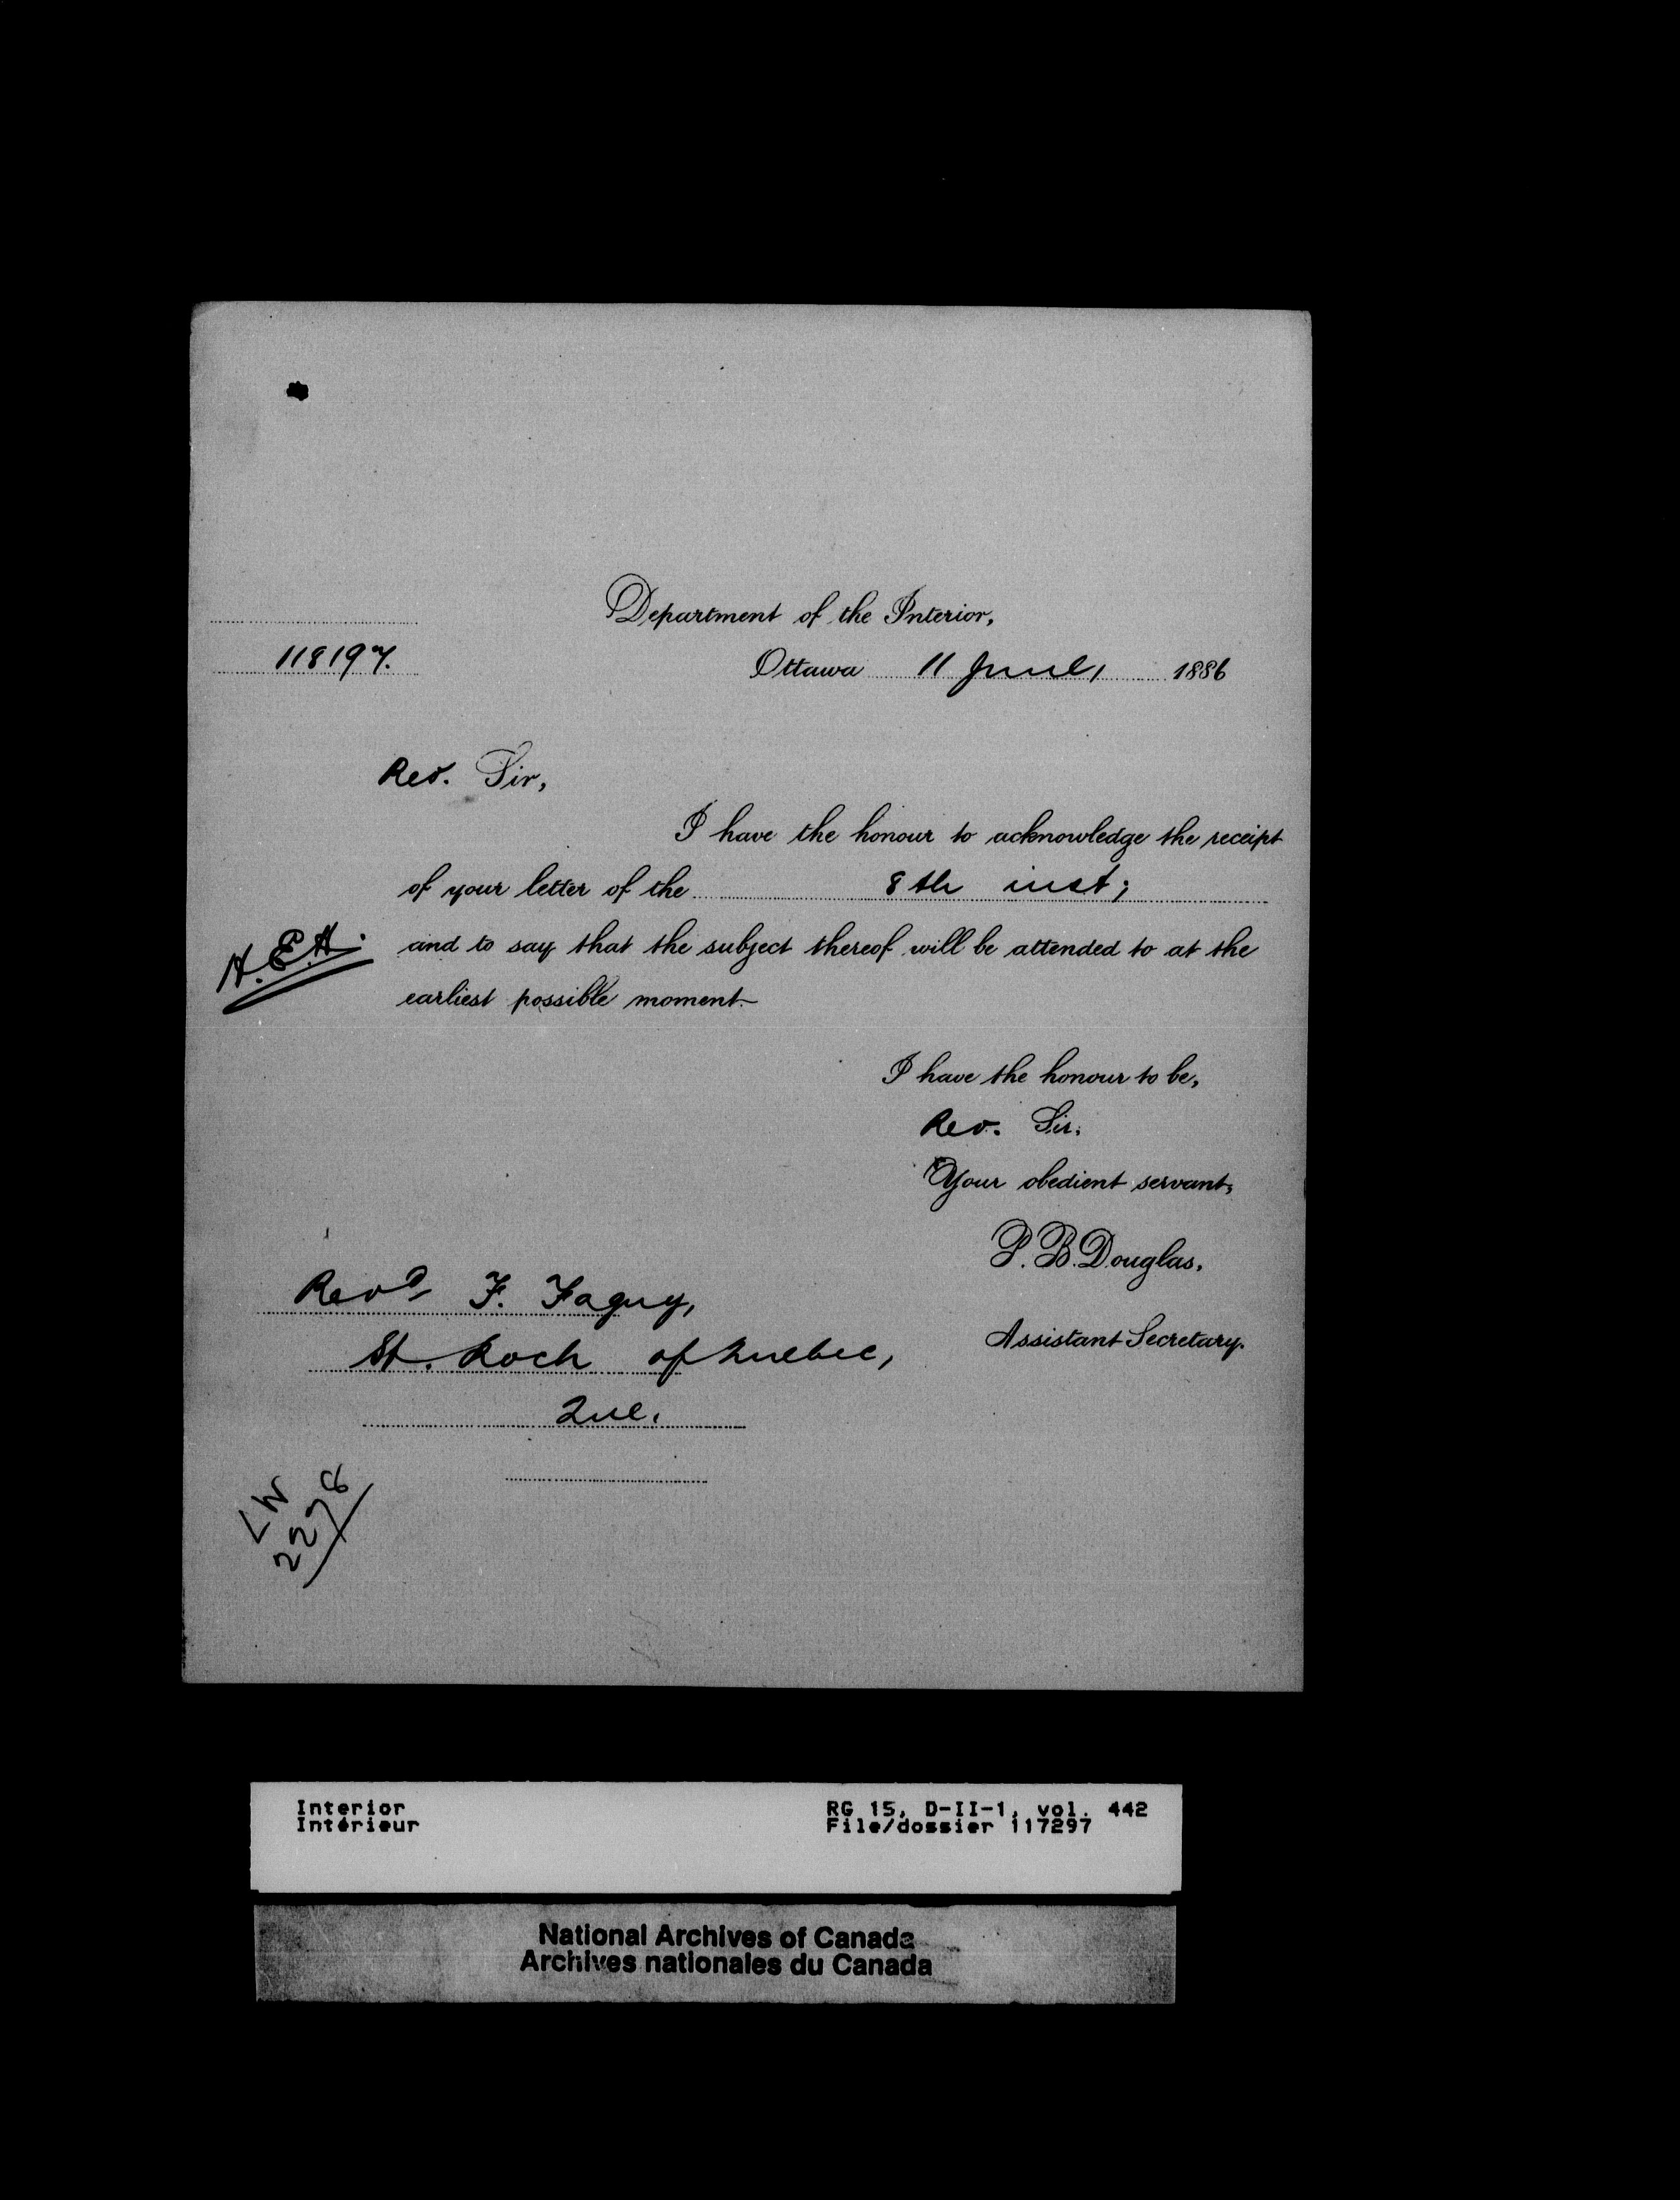 Department of the Interior,
118197.
Ottawa 11 June, 1886
Rev. Sir,
I have the honour to acknowledge the receipt
of your letter of the 8th inst;
H.E.H.
and to say that the subject thereof will be attended to at the
earliest possible moment
I have the honour to be,
Rev. Sir.
Your obedient servant,
P. B. Douglas,
Assistant Secretary.
Revd F. Faguy,
St. Roch of Quebec,
Que.
2278
Interior
Intérieur
RG 15, D-II-1, vol. 442
File/dossier 117297
National Archives of Canada
Archives nationales du Canada